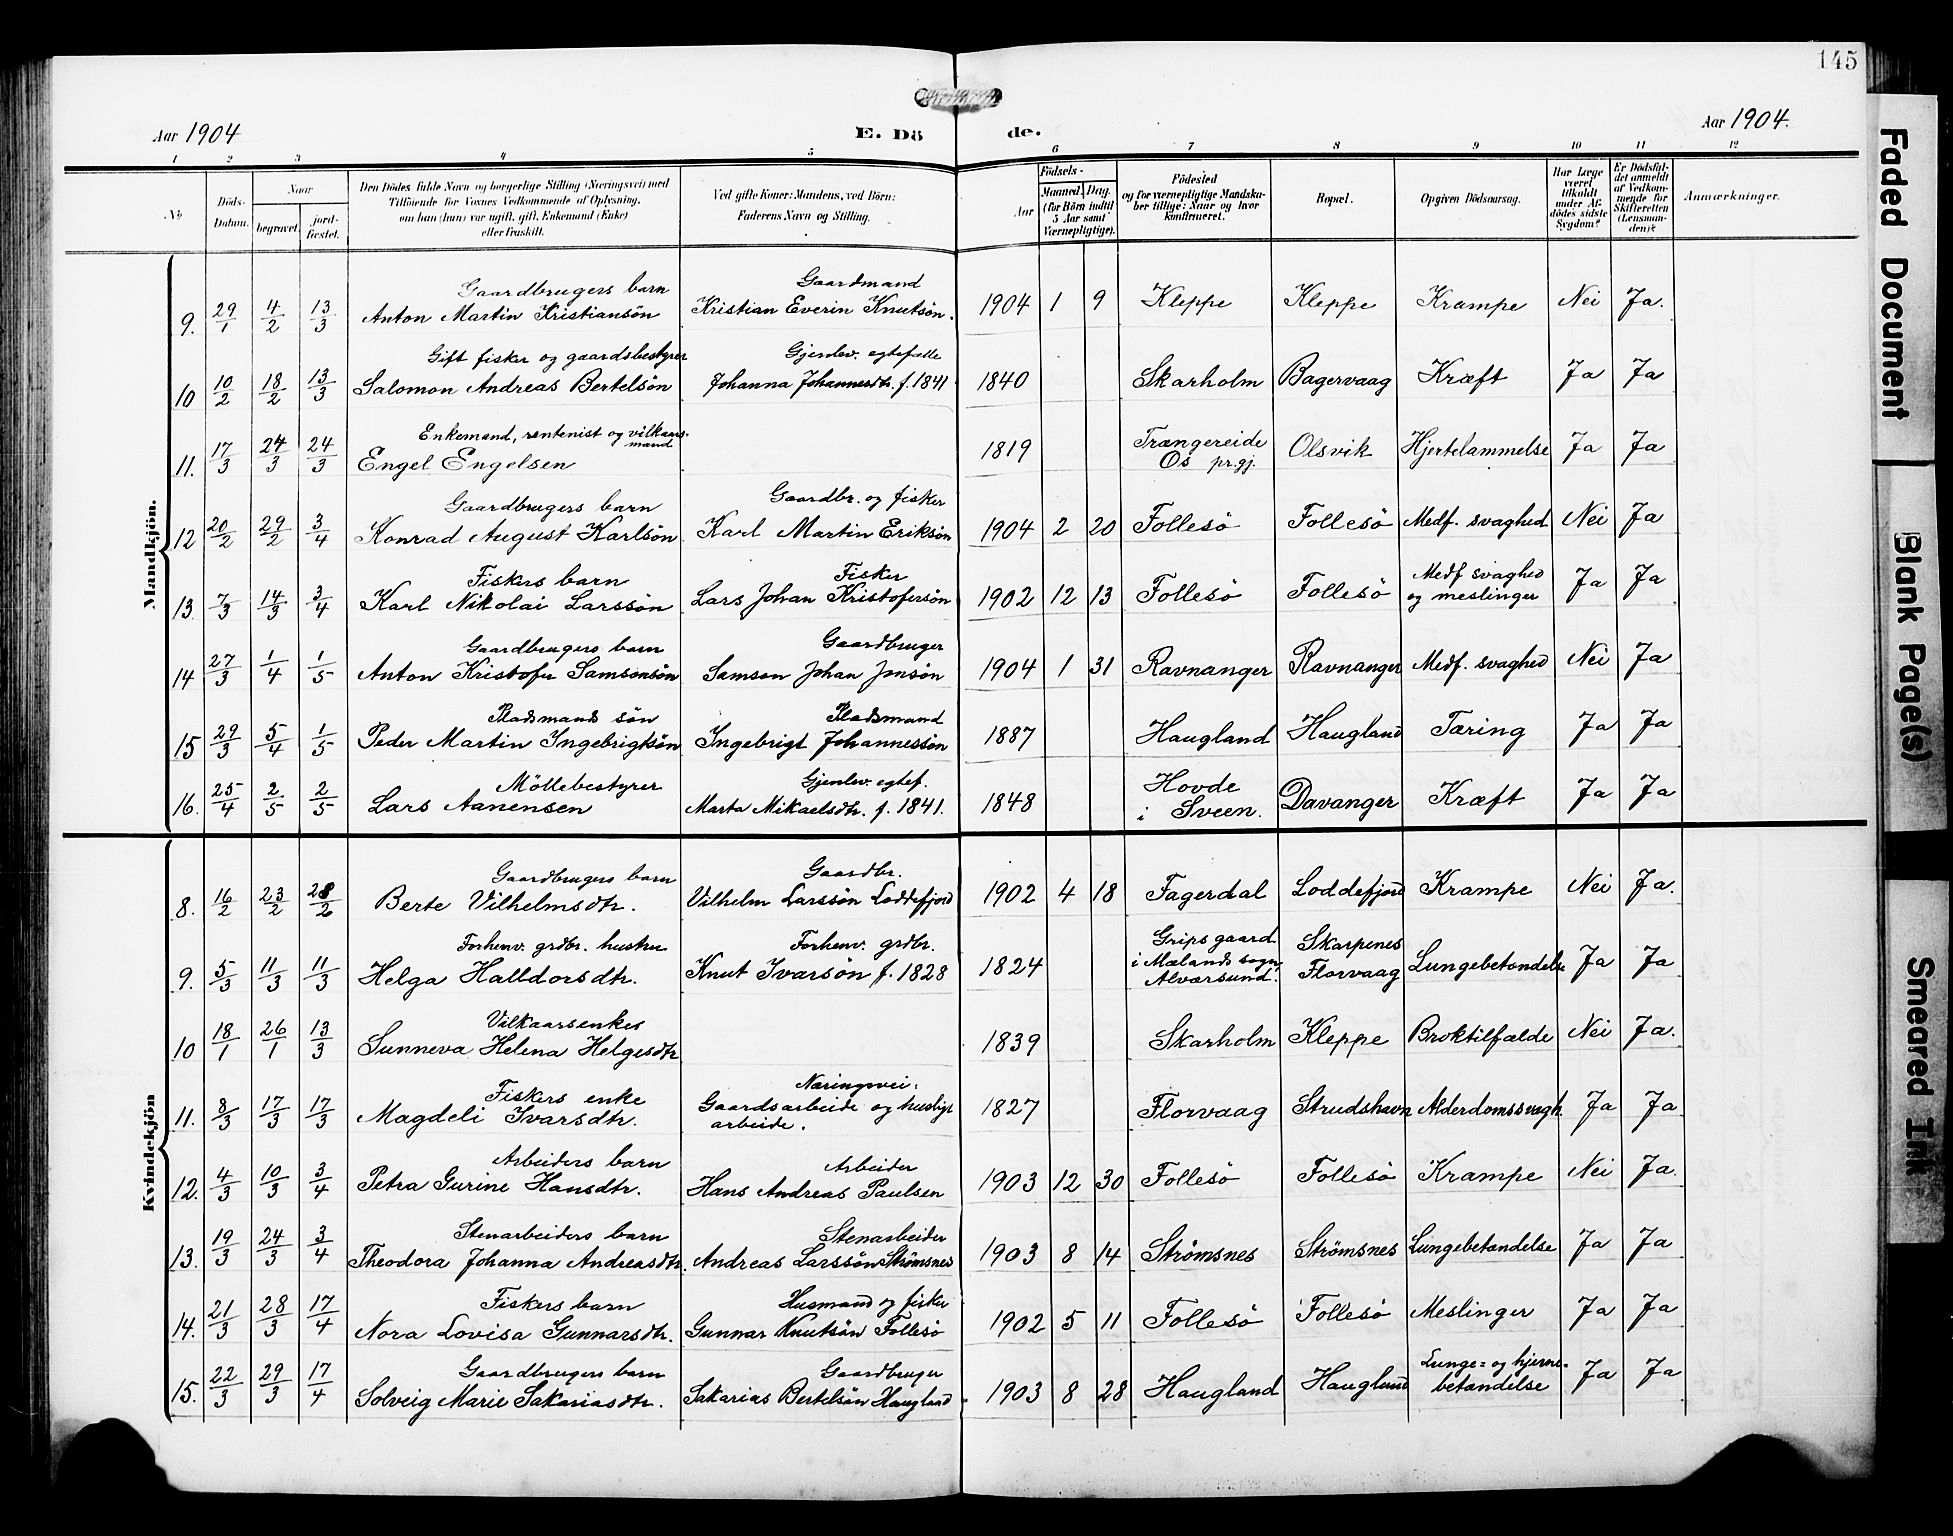 145
Aar 1904
E. Dö
de.
Aar 1904.
1 2 3 4 5 6 7 8 9 10 11 12
No
Döds-Datum.
Naar
begravet.
jord-fæstet.
Den Dödes fulde Navn og borgerlige Stilling (Næringsvei) med
Tilföiende for Voxnes Vedkommende af Oplysning,
om han (hun) var ugift, gift, Enkemand (Enke)
eller fraskilt.
Ved gifte Koner: Mandens, ved Börn:
Faderens Navn og Stilling.
Födsels-
Aar
Maaned. Dag.
(for Börn indtil
5 Aar samt
Værnepligtige).
Födested
og for værnepligtige Mandska-
ber tillige: Naar og hvor
konfirmeret.
Bopæl.
Opgiven Dödsaarsag.
Har Læge
været
tilkaldt
under Af-
dödes sidste
Sygdom?
Er Dödsfal-
det anmeldt
af Vedkom-
mende for
Skifteretten
(Lensman-
den)?
Anmærkninger.
Mandkjön.
Gaardbrugers barn Gaardmand
9. 29/1 4/2 13/3 Anton Martin Kristiansön Kristian Everin Knutsön. 1904 1 9 Kleppe Kleppe Krampe Nei Ja.
Gift fisker og gaardsbestyrer Gjenlev. egtefelle
10 10/2 18/2 13/3 Salomon Andreas Bertelsön Johanna Johannesdtr. f. 1841 1840 Skarholm Bagervaag Kræft Ja Ja
Enkemand, rentenist og vilkaars-
mand
11. 17/3 24/3 24/3 Engel Engelsen 1819 Trængereide Olsvik Hjertelammelse Ja Ja
Os pr.gj.
Gaardbrugers barn Gaardbr. og fisker
12 20/2 29/2 3/4 Konrad August Karlsön Karl Martin Eriksön 1904 2 20 Follesö Follesö Medf. svaghed Nei Ja
Fiskers barn Fisker Medf svaghed
13. 7/3 14/3 3/4 Karl Nikolai Larssön Lars Johan Kristofersön 1902 12 13 Follesö Follesö og meslinger Ja Ja
Gaardbrugers barn Gaardbruger
14 27/3 1/4 1/5 Anton Kristofer Samsonsön Samson Johan Jonsön 1904 1 31 Ravnanger Ravnanger Medf. svaghed Nei Ja
Pladsmands sön Pladsmand
15 29/3 5/4 1/5 Peder Martin Ingebrigtsön Ingebrigt Johannessön 1887 Haugland Haugland Tæring Ja Ja
Möllebestyrer Gjenlev. egtef. Hovde
16. 25/4 2/5 2/5 Lars Aanensen Marta Mikaelsdtr. f. 1841. 1848 i Sveen. Davanger Kræft Ja Ja
Kvindekjön
Gaardbrugers barn Gaardbr.
8. 16/2 23/2 28/2 Berte Vilhelmsdtr. Vilhelm Larssön Loddefjord 1902 4 18 Fagerdal Loddefjord Krampe Nei Ja.
Forhenv. grdbr. hustru Forhenv. grdbr. Gripsgaard Skarpenes
9. 5/3 11/3 11/3 Helga Halldorsdtr. Knut Ivarsön f. 1828 1824 i Mælands sogn, Florvaag Lungebetændelse Ja Ja
Alværsund.
Vilkaarsenke
10 18/1 26/1 13/3 Sunneva Helena Helgesdtr 1839 Skarholm Kleppe Broktilfælde Nei Ja.
Fiskers enke Næringsvei:
11. 8/3 17/3 17/3 Magdeli Ivarsdtr. Gaardsarbeide og husligt 1827 Florvaag Strudshavn Alderdomssvagh. Ja Ja
arbeide.
Arbeiders barn Arbeider
12. 4/3 10/3 3/4 Petra Gurine Hansdtr. Hans Andreas Paulsen 1903 12 30 Follesö Follesö Krampe Nei Ja.
Stenarbeiders barn Stenarbeider
13. 19/3 24/3 3/4 Theodora Johanna Andreasdtr. Andreas Larssön Strömsnes 1903 8 14 Strömsnes Strömsnes Lungebetændelse Ja Ja
Fiskers barn Husmand og fisker
14. 21/3 28/3 17/4 Nora Lovisa Gunnarsdtr. Gunnar Knutsön Follesö 1902 5 11 Follesö Follesö Meslinger Ja Ja
Gaardbrugers barn Gaardbruger Lunge= og hjerne-
15. 22/3 29/3 17/4 Solveig Marie Sakariasdtr. Sakarias Bertelsön Haugland 1903 8 28 Haugland Haugland betændelse Ja Ja
Faded Document
Blank Page(s)
Smeared Ink